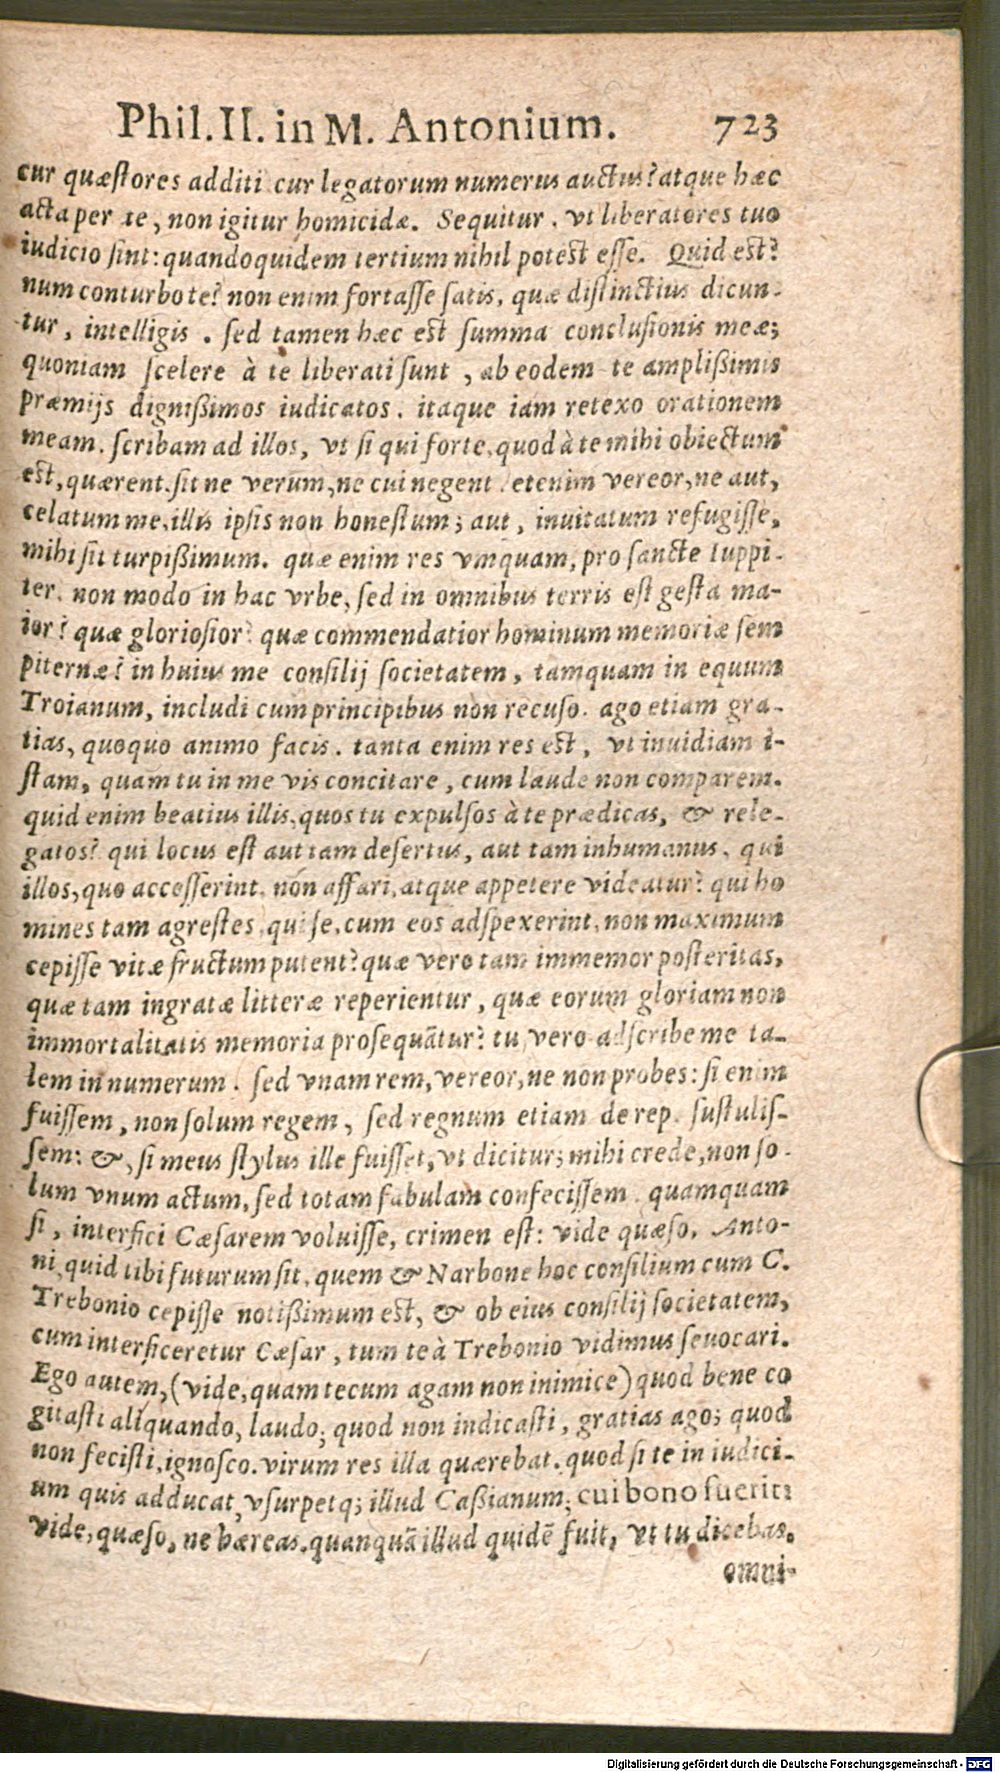 Phil. II. in M. Antonium. 723
cur quæstores additi cur legatorum numerus auctus? atque hæc
acta per te, non igitur homicidæ. Sequitur. vt liberatores tuo
iudicio sint: quandoquidem tertium nihil potest esse. Quid est?
num conturbo te? non enim fortasse satis, quæ distinctius dicun-
tur, intelligis. sed tamen hæc est summa conclusionis meæ;
quoniam scelere à te liberati sunt, ab eodem te amplißimis
præmijs dignißimos iudicatos. itaque iam retexo orationem
meam. scribam ad illos, vt si qui forte, quod à te mihi obiectum
est, quærent. sit ne verum, ne cui negent. etenim vereor, ne aut,
celatum me, illis ipsis non honestum; aut, inuitatum refugisse,
mihi sit turpißimum. quæ enim res vmquam, pro sancte Iuppi-
ter. non modo in hac vrbe, sed in omnibus terris est gesta ma-
ior? quæ gloriosior? quæ commendatior hominum memoriæ sem
piternæ? in huius me consilij societatem, tamquam in equum
Troianum, includi cum principibus non recuso. ago etiam gra-
tias, quoquo animo facis. tanta enim res est, vt inuidiam i-
stam, quam tu in me vis concitare, cum laude non comparem.
quid enim beatius illis, quos tu expulsos à te prædicas, & rele-
gatos? qui locus est aut tam desertus, aut tam inhumanus, qui
illos, quo accesserint. non affari, atque appetere videatur? qui ho
mines tam agrestes, qui se, cum eos adspexerint, non maximum
cepisse vitæ fructum putent? quæ vero tam immemor posteritas,
quæ tam ingratæ litteræ reperientur, quæ eorum gloriam non
immortalitatis memoria prosequãtur? tu vero adscribe me ta-
lem in numerum. sed vnam rem, vereor, ne non probes: si enim
fuissem, non solum regem, sed regnum etiam de rep. sustulis-
sem: &, si meus stylus ille fuisset, vt dicitur; mihi crede, non so-
lum vnum actum, sed totam fabulam confecissem. quamquam
si, interfici Cæsarem voluisse, crimen est: vide quæso, Anto-
ni, quid tibi futurum sit, quem & Narbone hoc consilium cum C.
Trebonio cepisse notißimum est, & ob eius consilij societatem,
cum interficeretur Cæsar, tum te à Trebonio vidimus seuocari.
Ego autem, (vide, quam tecum agam non inimice) quod bene co
gitasti aliquando, laudo; quod non indicasti, gratias ago; quod
non fecisti, ignosco. virum res illa quærebat. quod si te in iudici-
um quis adducat, vsurpetq; illud Caßianum; cui bono fuerit:
vide, quæso, ne hæreas. quanquã illud quidẽ fuit, vt tu dicebas,
omni-
Digitalisierung gefördert durch die Deutsche Forschungsgemeinschaft - DFG